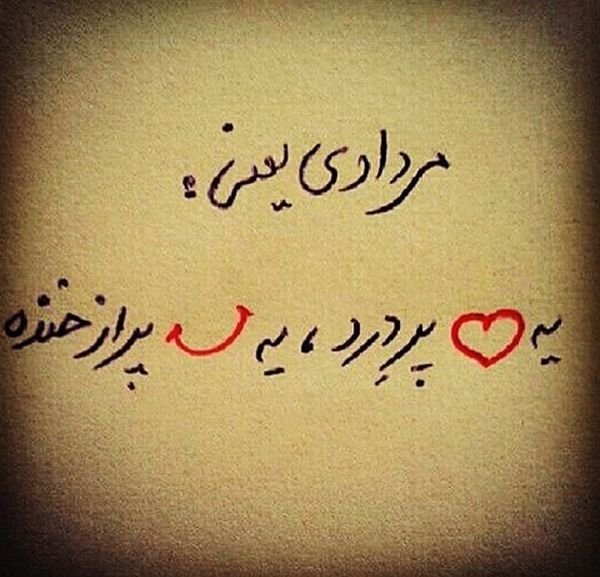 مردادی یعنی :
یه ❤ پر دِرد ، یه پر از خنده